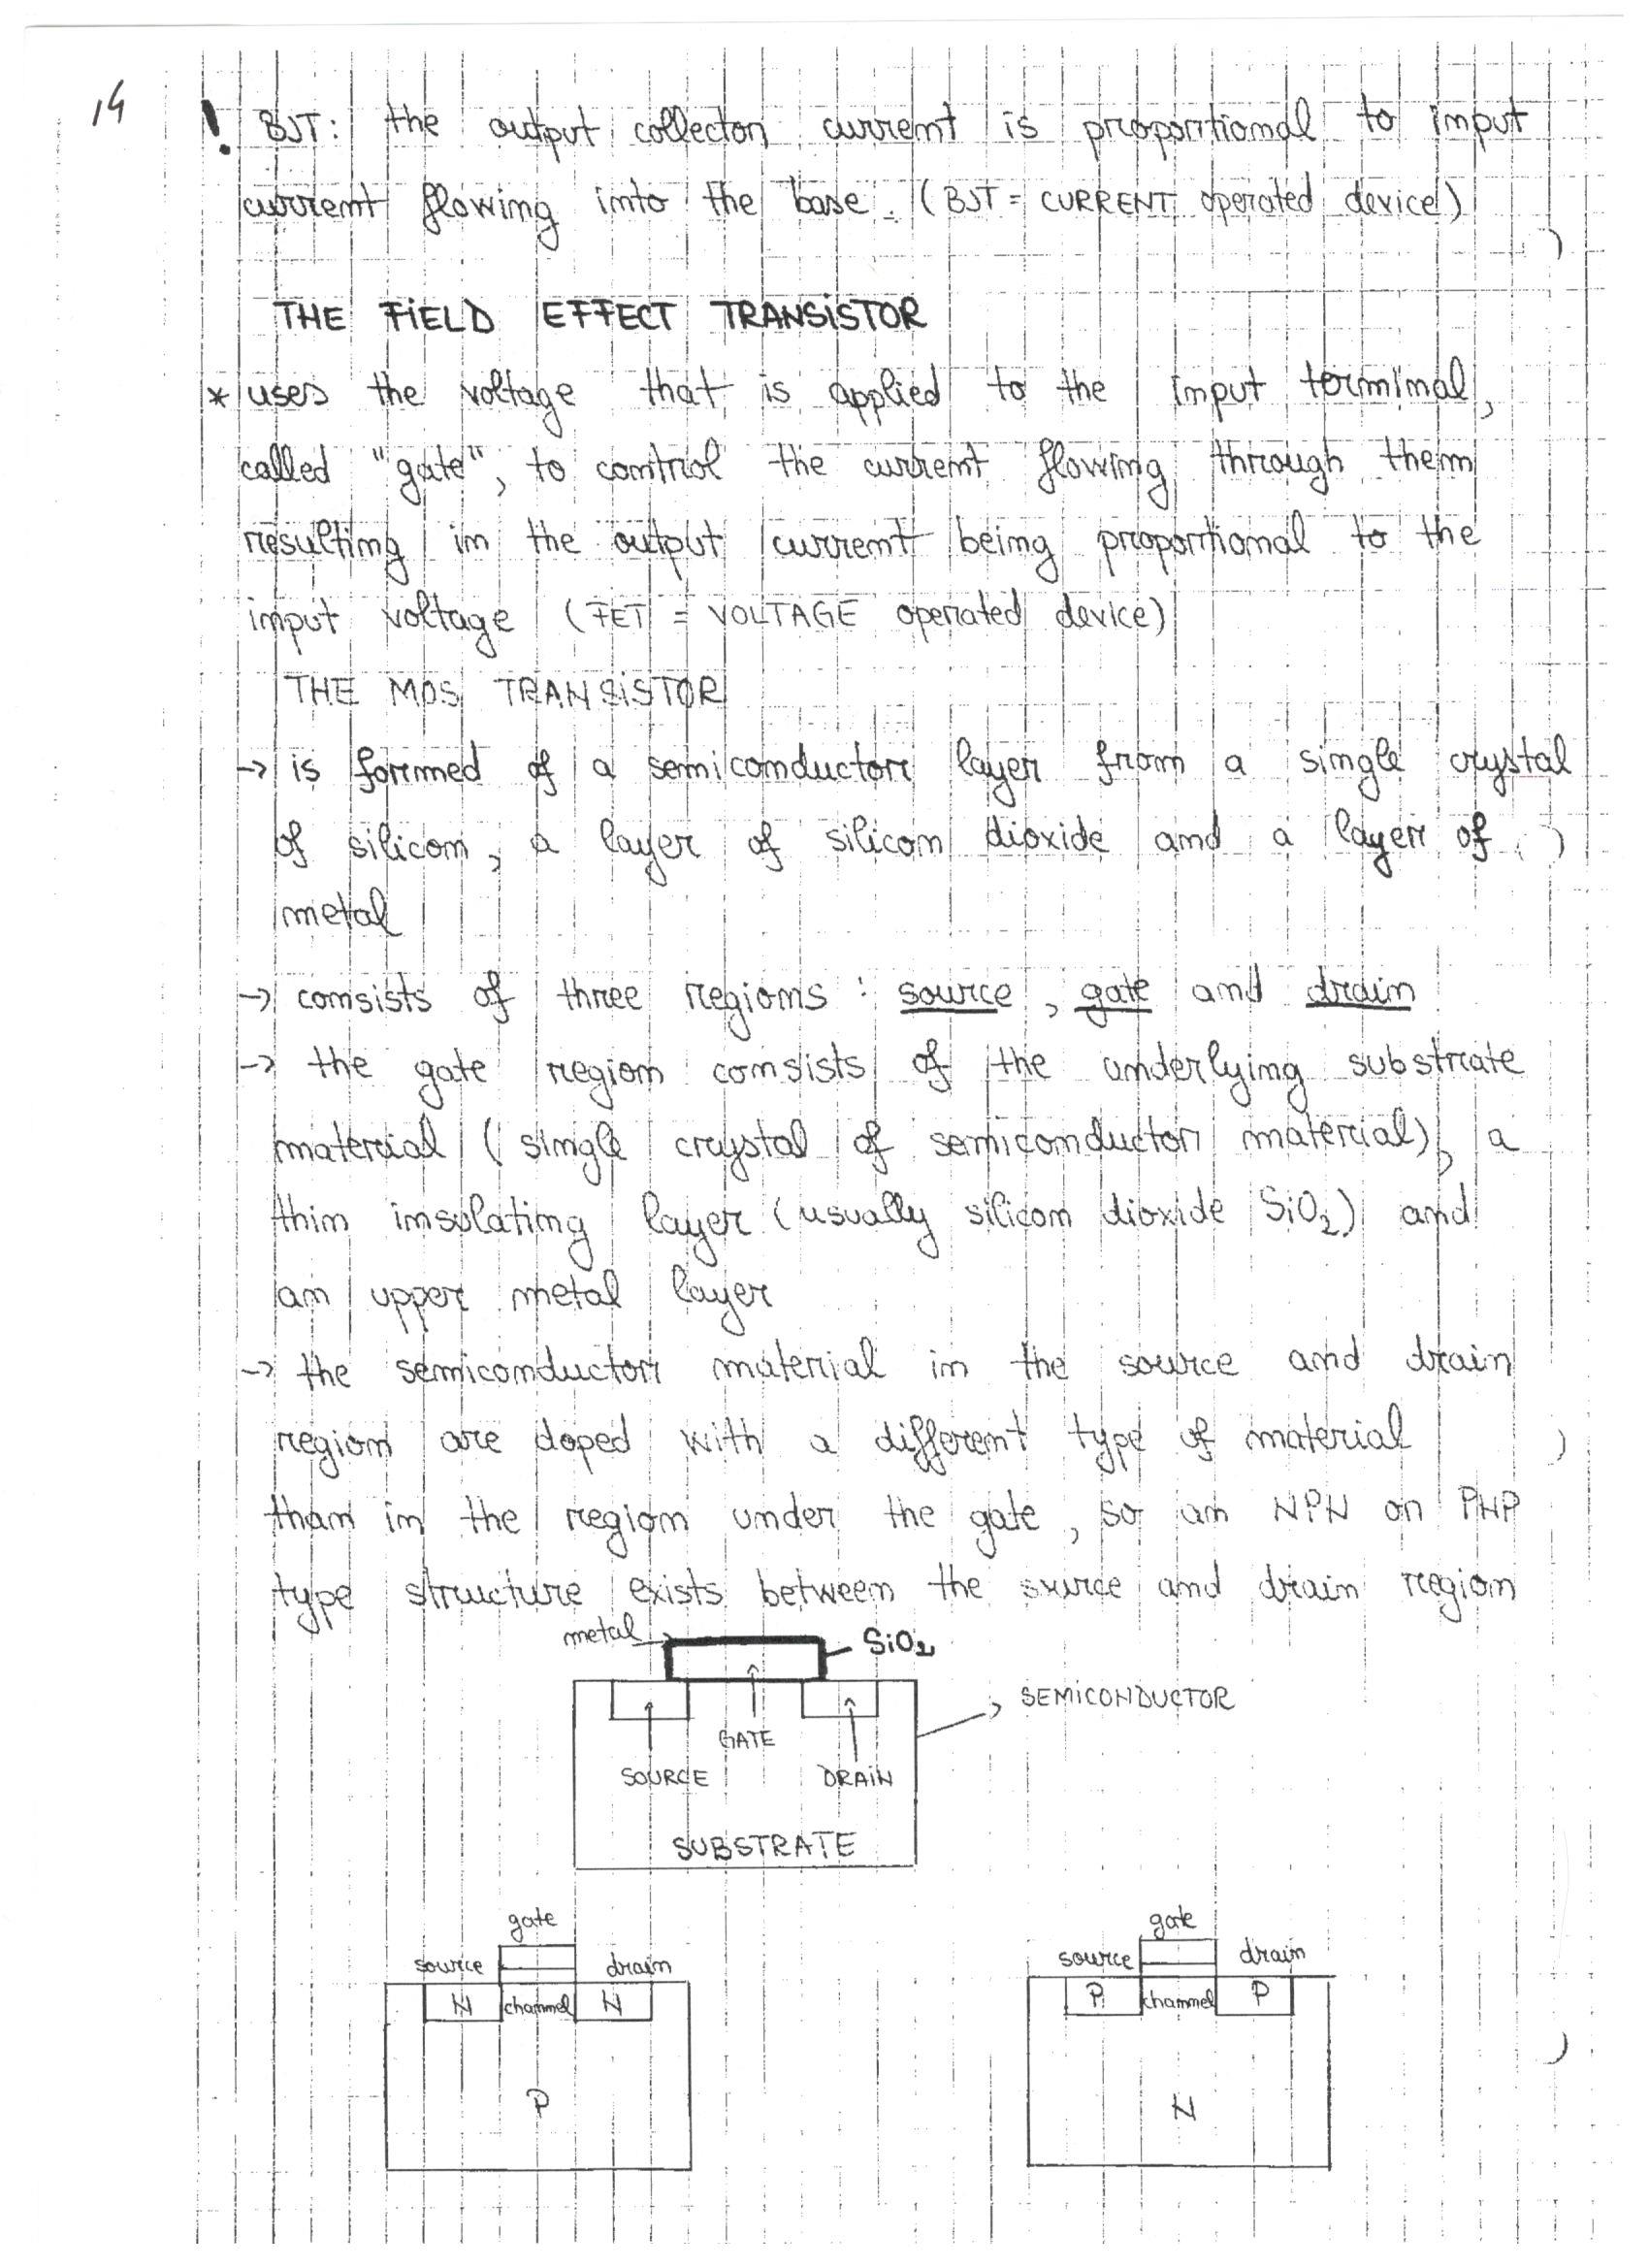 14
! BJT: the output collector current is proportional to input
current flowing into the base. (BJT = CURRENT operated device)
THE FIELD EFFECT TRANSISTOR
* uses the voltage that is applied to the input terminal,
called "gate", to control the current flowing through them
resulting in the output current being proportional to the
input voltage (FET = VOLTAGE operated device)
THE MOS TRANSISTOR
→ is formed of a semiconductor layer from a single crystal
of silicon, a layer of silicon dioxide and a layer of
metal
→ consists of three regions: source, gate and drain
→ the gate region consists of the underlying substrate
material (single crystal of semiconductor material), a
thin insolating layer (usually silicon dioxide SiO₂) and
an upper metal layer
→ the semiconductor material in the source and drain
region are doped with a different type of material
than in the region under the gate, so an NPN or PNP
type structure exists between the source and drain region
metal SiO₂
SEMICONDUCTOR
GATE
SOURCE DRAIN
SUBSTRATE
gate
source drain
N channel N
P
gate
source drain
P channel P
N